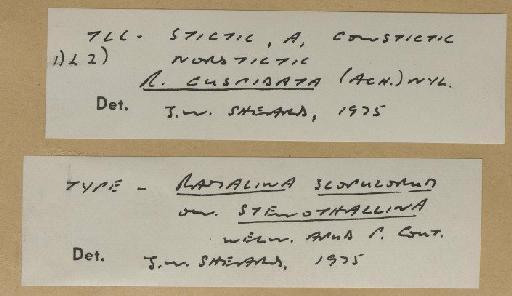 TLC - STICTIC, A, CONSTICTIC
1) & 2) NORSTICTIC
R. CUSPIDATA (ACH.) NYL.
Det. J.W. SHEARD, 1975
TYPE - RAMALINA SCOPULORUM
STENOTHALLINA
WELW. APUD P. COUT.
Det. J.W. SHEARD, 1975